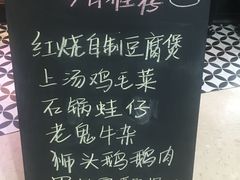 今日推荐
红烧自制豆腐煲
上汤鸡毛菜
石锅蛙仔
老鬼牛杂
狮头鹅鹅肉